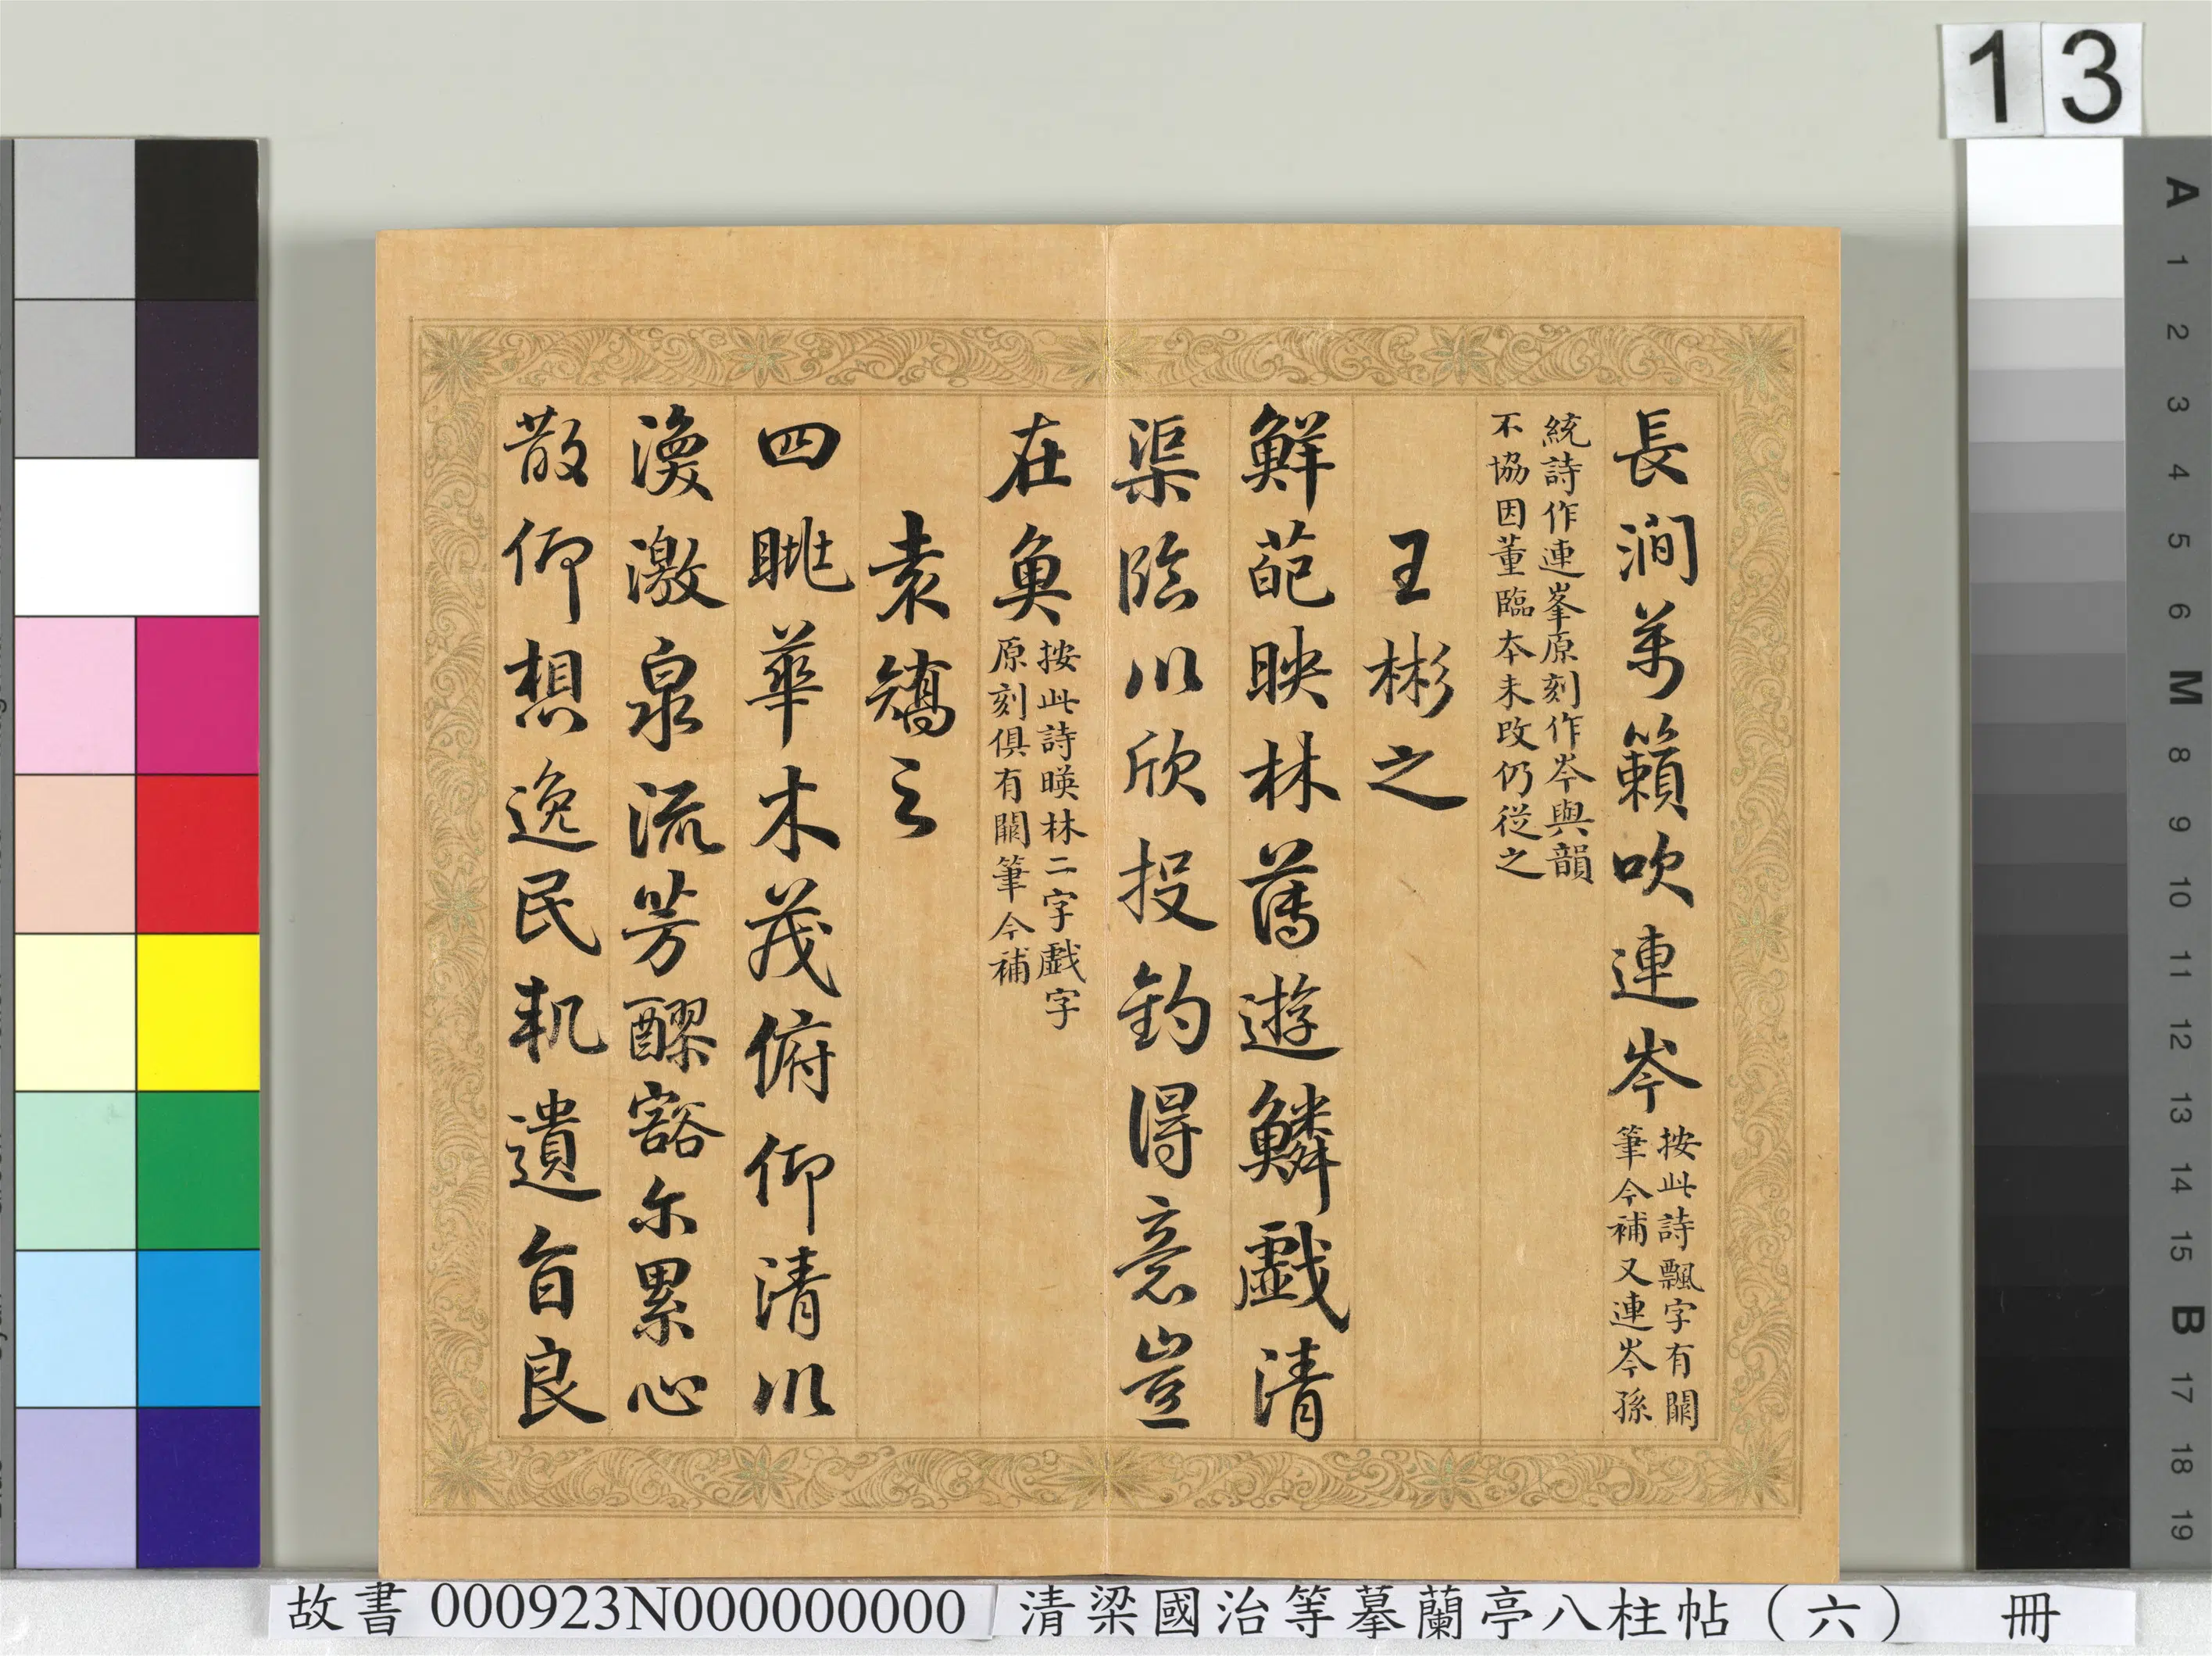 13
長澗萬籟吹連岑
按此詩飄字有闕
筆今補又連岑孫
統詩作連峯原刻作岑與韻
不協因董臨本未改仍從之
王彬之
鮮葩映林薄遊鱗戲清
渠臨川欣投釣得意豈
在魚
按此詩暎林二字戲字
原刻俱有闕筆今補
袁嶠之
四眺華木茂俯仰清川
渙激泉流芳醪豁尓累心
散仰想逸民軌遺旨良
故書 000923N000000000 清梁國治等摹蘭亭八柱帖（六） 冊
A
1
2
3
4
5
6
M
8
9
10
11
12
13
14
15
B
17
18
19